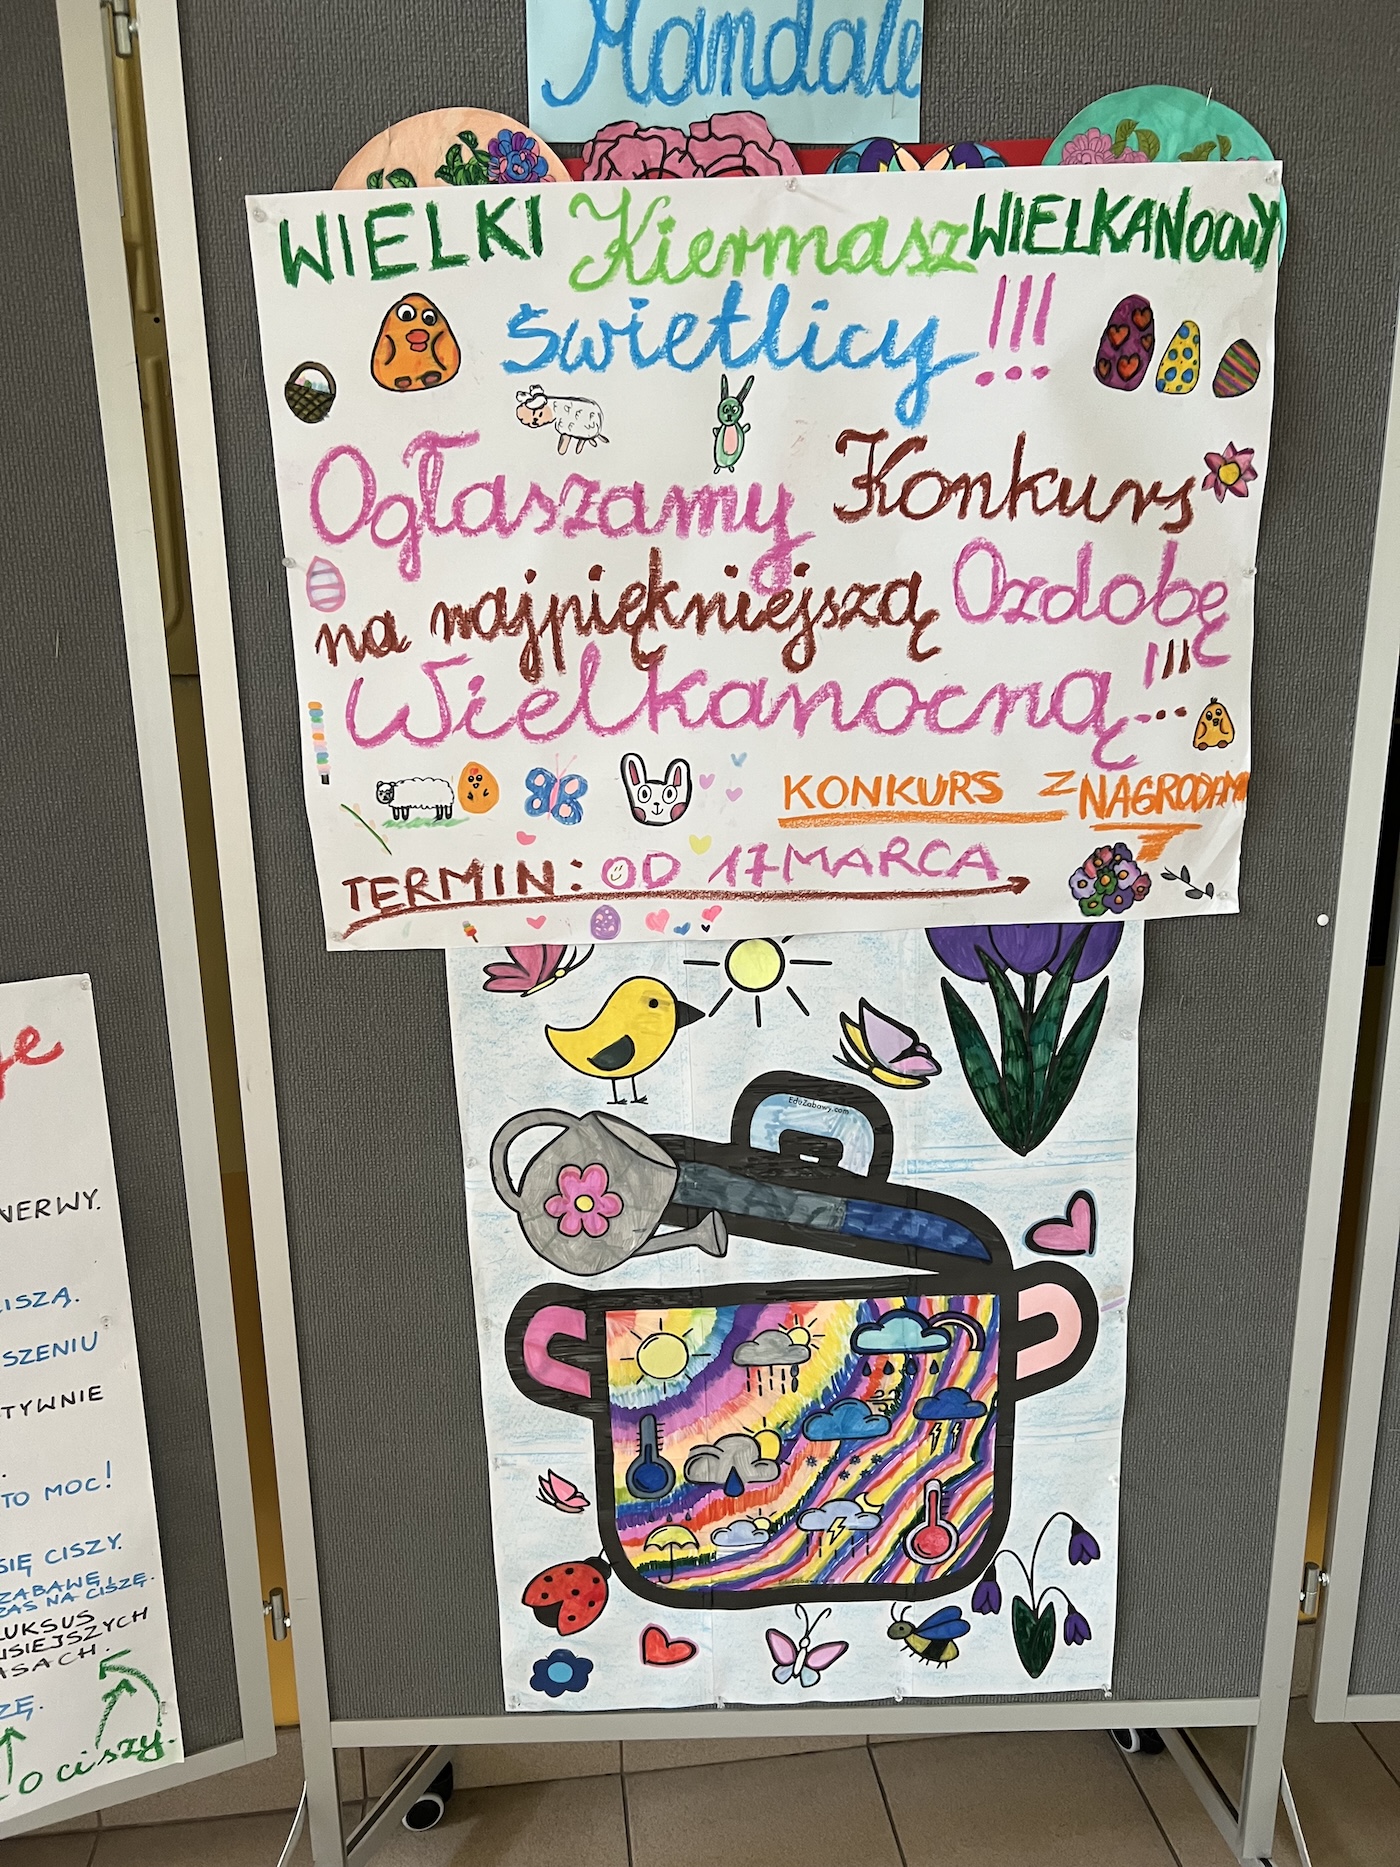 Mandale
WIELKI Kiermasz WIELKANOCNY
Świetlicy!!!
Ogłaszamy Konkurs
na najpiękniejszą Ozdobę
Wielkanocną!!!
KONKURS Z NAGRODAMI
TERMIN: OD 17 MARCA
EduZabawy.com
NERWY.
CISZĄ.
SZENIU
TYWNIE
TO MOC!
SIĘ CISZY.
ZABAWĘ I
ZAS NA CISZĘ.
LUKSUS
ISIEJSZYCH
ASACH.
ZĘ.
O ciszy.